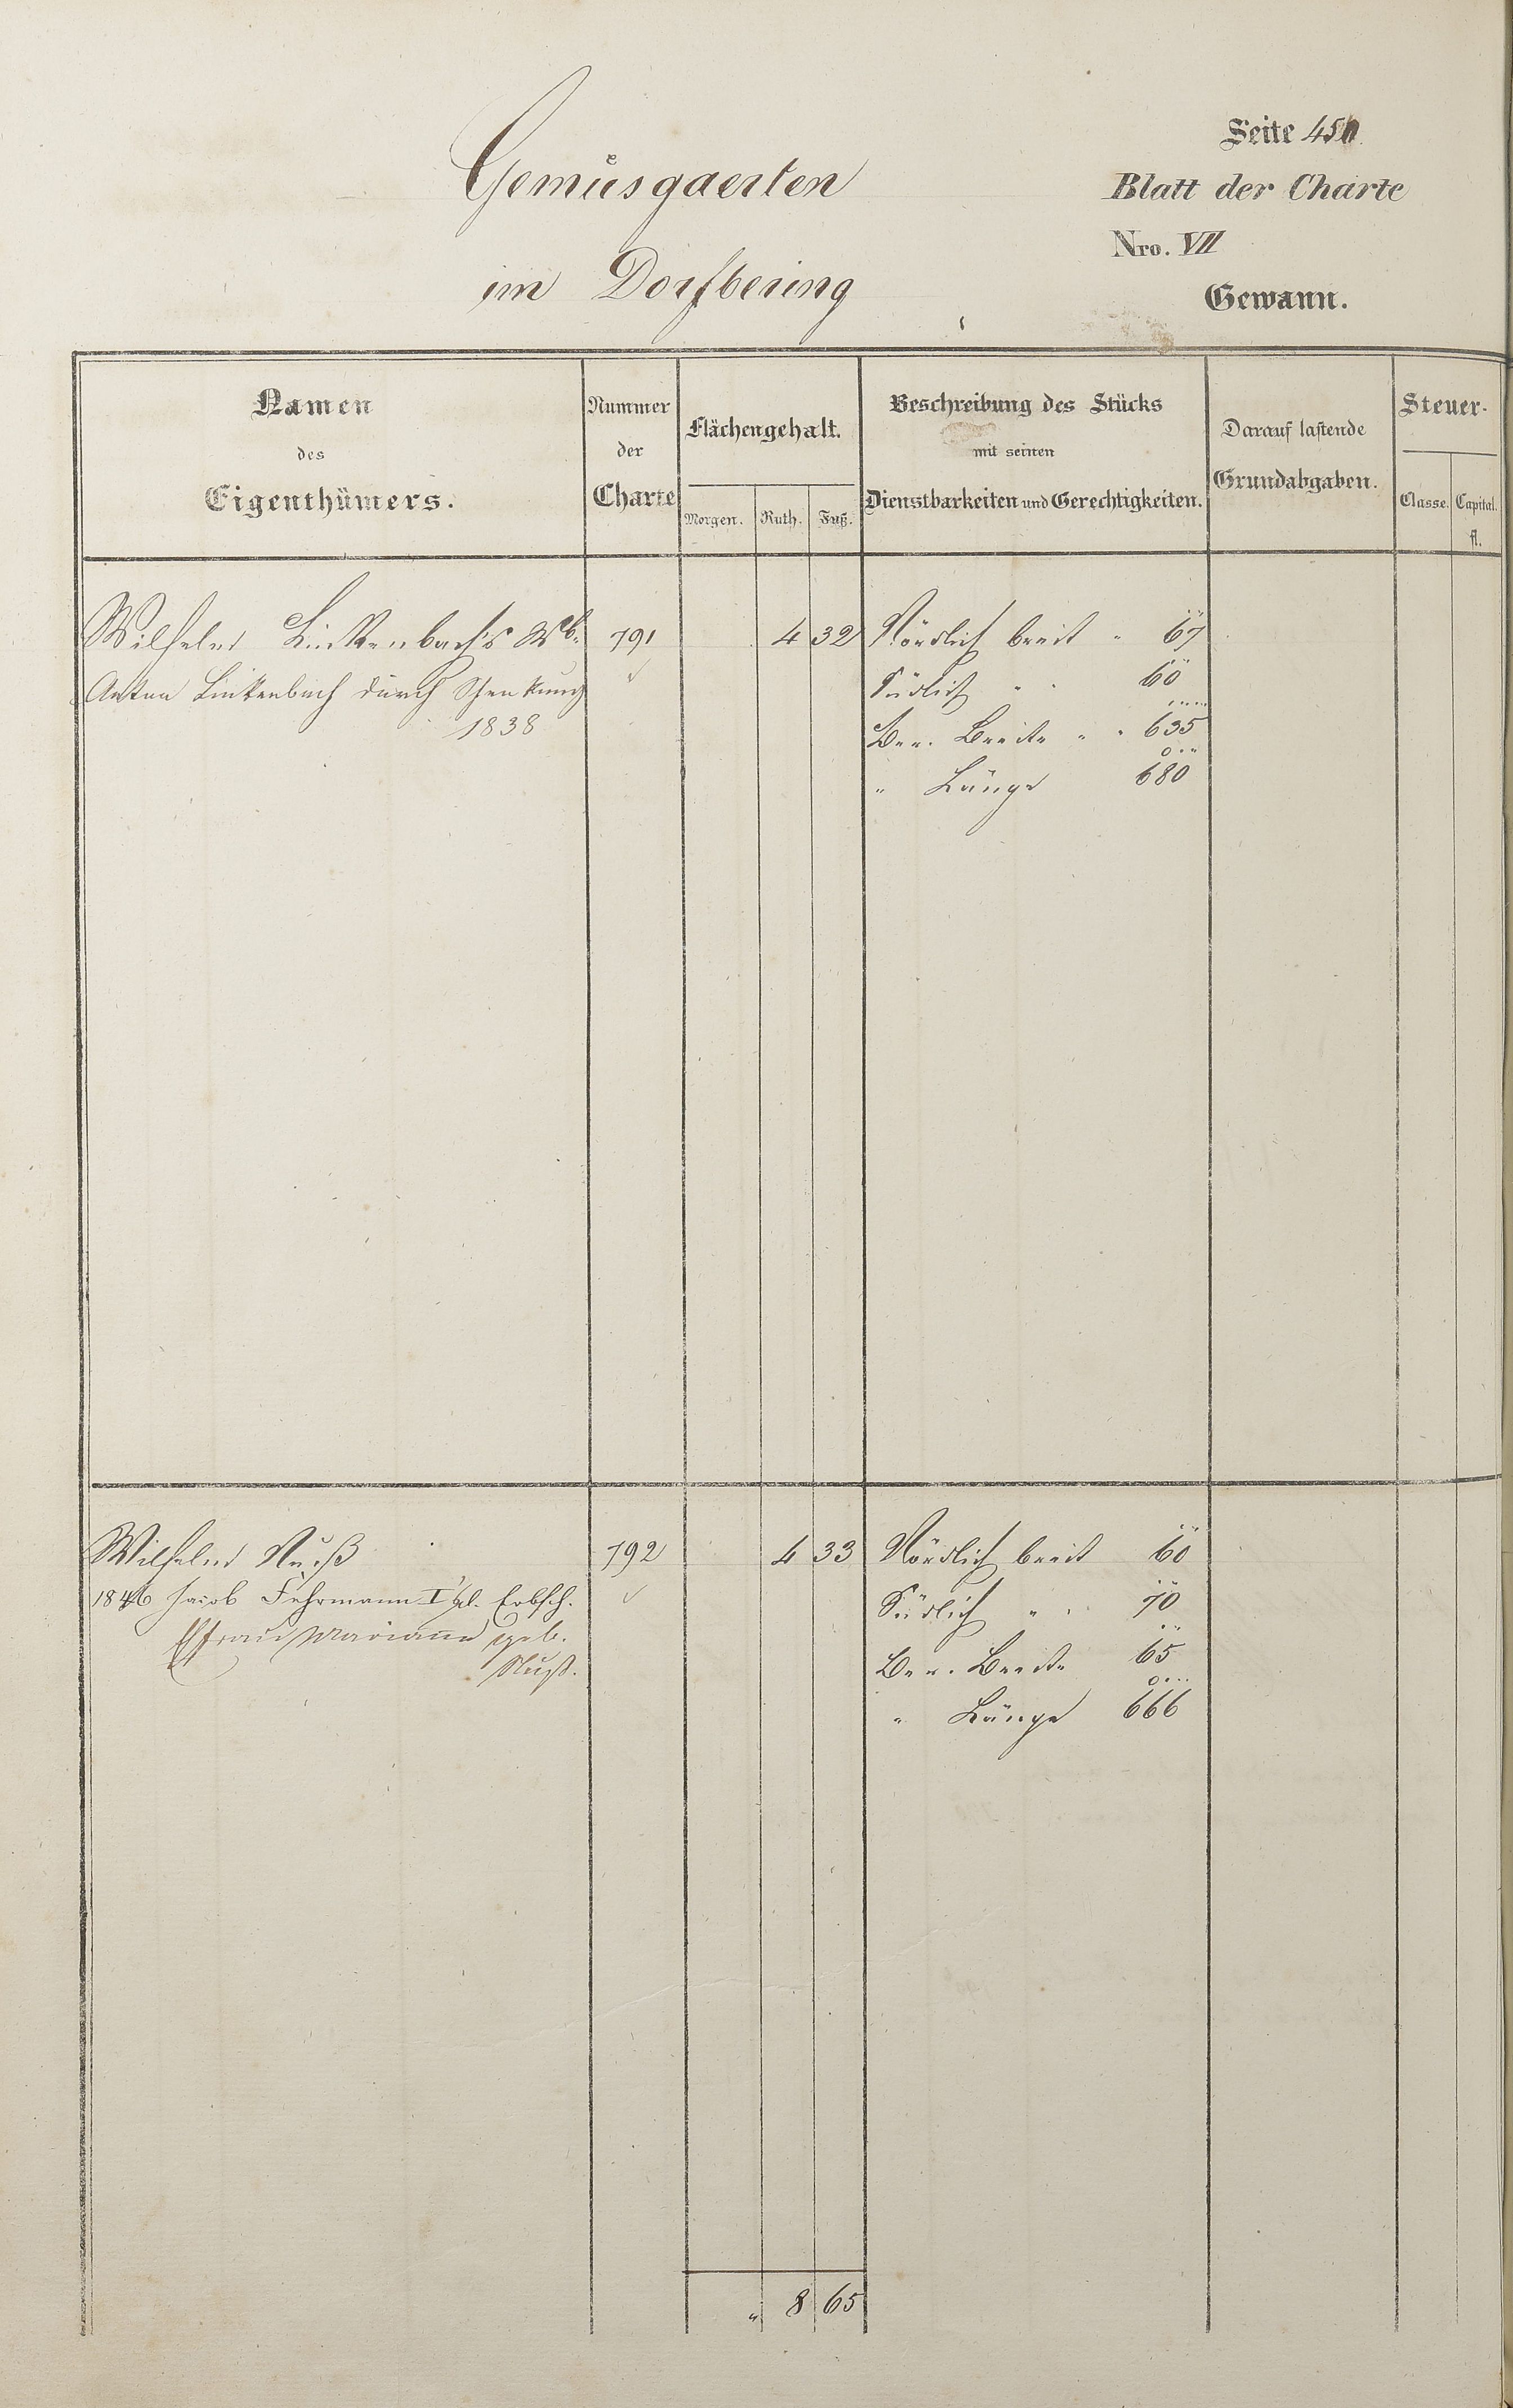 Seite 450
Gemüsgaerten
Blatt der Charte
Nro. VII
im Dorfbering
Gewann.
Namen
des
Eigenthümers.
Nummer
der
Charte
Flächengehalt.
Morgen. Ruth. Fuß.
Beschreibung des Stücks
mit seinen
Dienstbarkeiten und Gerechtigkeiten.
Darauf lastende
Grundabgaben.
Steuer-
Classe. Capital.
fl.
Wilhelm Linkenbach's Wb. 791 4 32 Nördlich breit " 67
Anton Linkenbach durch Schenkung Südlich " " 60
1838 Ber. Breite " " 635
" Länge 680
Wilhelm Nuß 792 4 33 Nördlich breit 60
1846 Jacob Fuhrmann I gl. Erbsch. Südlich " " 70
Ehfrau Mariann geb. Ber. Breite 65
Nuß. " Länge 666
" 8 65